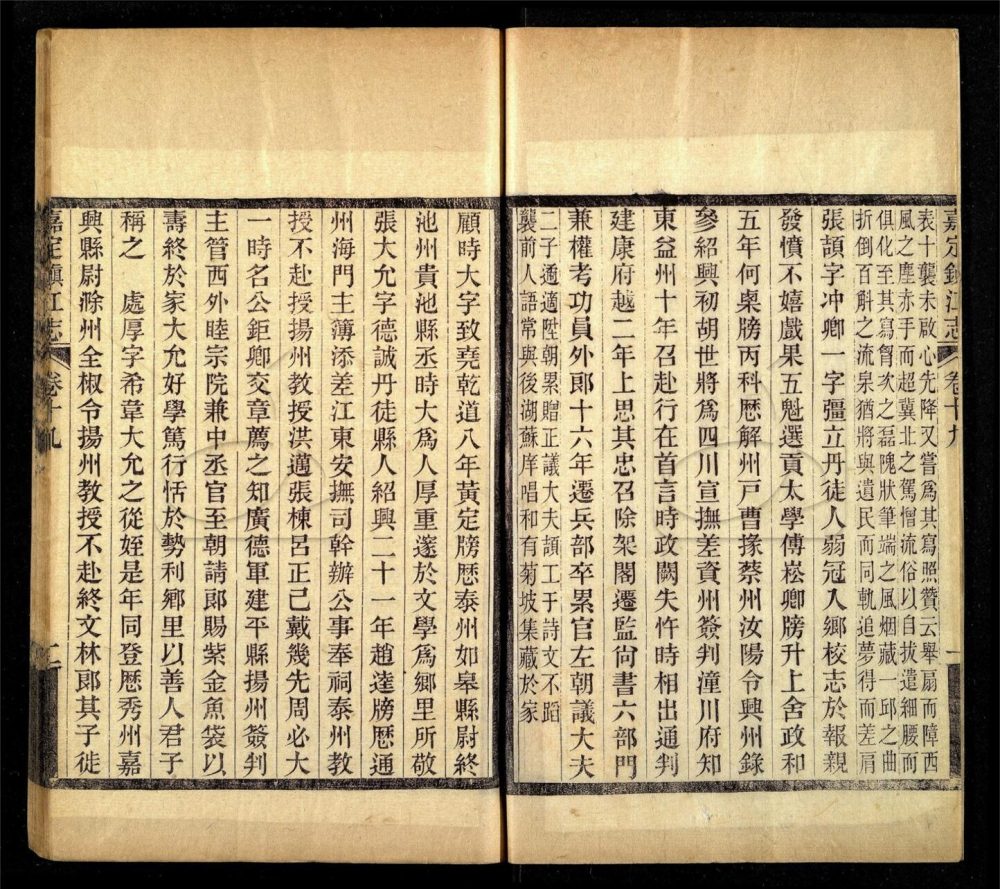 嘉定鎮江志 卷十九 一
表十襲未啟心先降又嘗爲其寫照贊云舉扇而障西
風之塵赤手而超冀北之駕憎流俗以自拔遣細腰而
俱化至其寫胷次之磊隗狀筆端之風烟藏一邱之曲
折倒百斛之流泉猶將與遺民而同軌追夢得而差肩
張頡字冲卿一字彊立丹徒人弱冠入鄉校志於報親
發憤不嬉戲果五魁選貢太學傅崧卿牓升上舍政和
五年何㮚牓丙科歴解州戸曹掾蔡州汝陽令興州錄
參紹興初胡世將爲四川宣撫差資州簽判潼川府知
東益州十年召赴行在首言時政闕失忤時相出通判
建康府越二年上思其忠召除架閣遷監尙書六部門
兼權考功員外郎十六年遷兵部卒累官左朝議大夫
二子適適陞朝累贈正議大夫頡工于詩文不蹈
襲前人語常與後湖蘇庠唱和有菊坡集藏於家
顧時大字致堯乾道八年黃定牓歴泰州如皋縣尉終
池州貴池縣丞時大爲人厚重邃於文學爲鄉里所敬
張大允字德誠丹徒縣人紹興二十一年趙逵牓歴通
州海門主簿添差江東安撫司幹辦公事奉祠泰州教
授不赴授揚州教授洪邁張棟呂正己戴幾先周必大
一時名公鉅卿交章薦之知廣德軍建平縣揚州簽判
主管西外睦宗院兼中丞官至朝請郎賜紫金魚袋以
壽終於家大允好學篤行恬於勢利鄉里以善人君子
稱之 處厚字希韋大允之從姪是年同登歴秀州嘉
興縣尉滁州全椒令揚州教授不赴終文林郎其子徙
嘉定鎮江志 卷十九 二